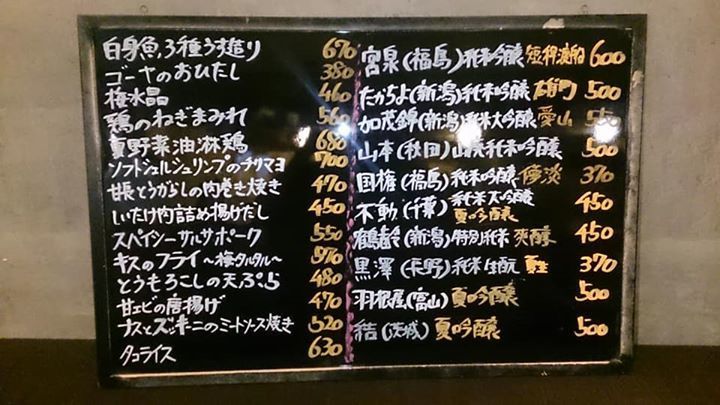 白身魚3種うす造り 670
ゴーヤのおひたし 380
梅水晶 460
鶏のねぎまみれ 560
夏野菜油淋鶏 680
ソフトシェルシュリンプのチリマヨ 700
甘長とうがらしの肉巻き焼き 470
しいたけ肉詰め揚げだし 450
スペイシーサルサポーク 550
キスのフライ〜梅タルタル〜 570
とうもろこしの天ぷら 480
甘エビの唐揚げ 470
ナスとズッキーニのミートソース焼き 520
タコライス 630
宮泉(福島)純米吟醸 短稈渡船 600
たかちよ(新潟)純米吟醸 雄町 500
加茂錦(新潟)純米大吟醸 愛山 550
山本(秋田)山廃純米吟醸 500
国権(福島)純米吟醸 370
不動(千葉)純米大吟醸 夏吟醸 450
鶴齢(新潟)特別純米 爽醇 450
黒澤(長野)純米生酛 夏生 370
羽根屋(富山)夏吟醸 500
結(茨城)夏吟醸 500